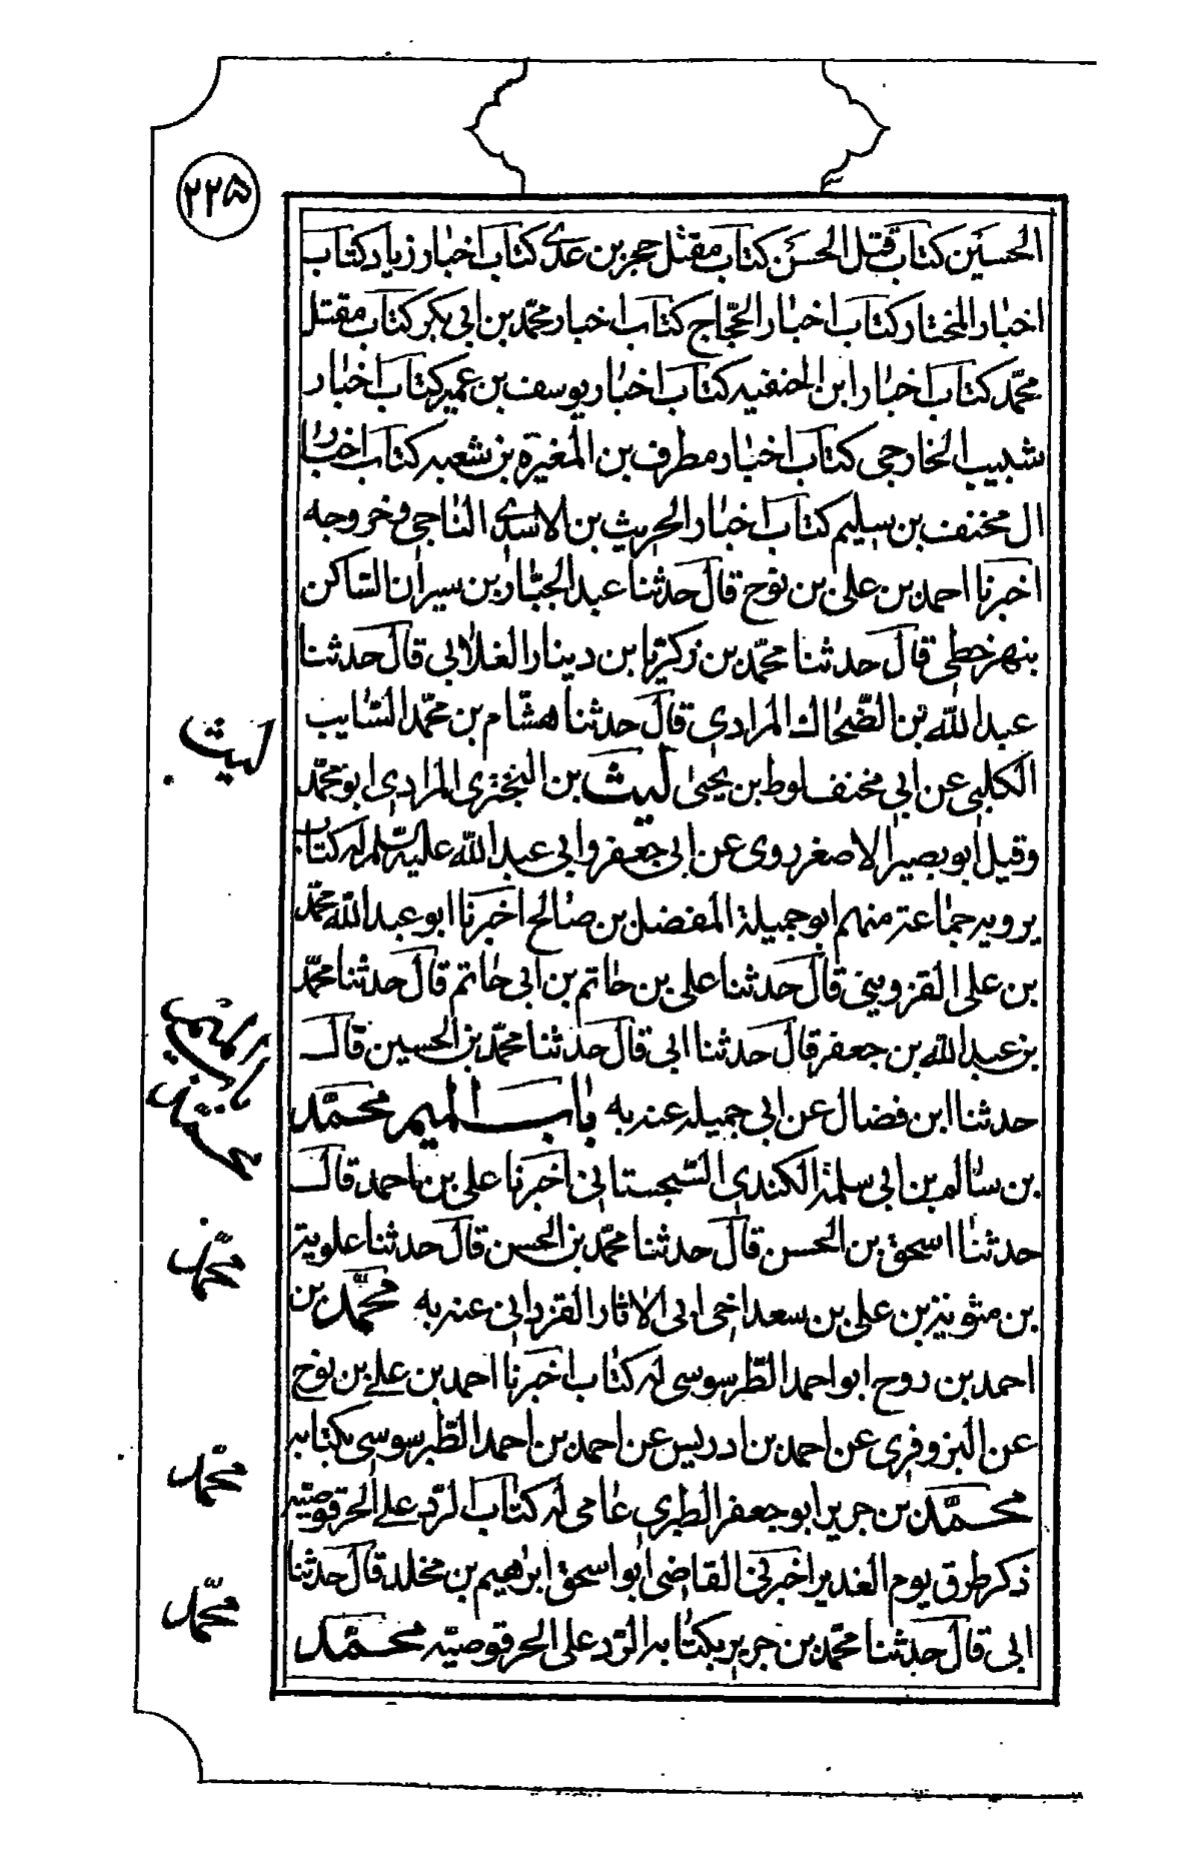 ٢٢٥
الحسين كتاب قتل الحسن كتاب مقتل حجر بن عدي كتاب اخبار زياد كتاب
اخبار المختار كتاب اخبار الحجّاج كتاب اخبار محمّد بن ابي بكر كتاب مقتل
محمّد كتاب اخبار ابن الحنفيه كتاب اخبار يوسف بن عمير كتاب اخبار
شبيب الخارجي كتاب اخبار مطرف بن المغيرة بن شعبه كتاب اخبار
ال مخنف بن سليم كتاب اخبار الحريث بن الاسدي الناجي وخروجه
اخبرنا احمد بن علي بن نوح قال حدثنا عبد الجبّار بن سيران الساكن
بنهر خطي قال حدثنا محمّد بن زكريّا بن دينار الغلابي قال حدثنا
عبد الله بن الضّحاك المرادي قال حدثنا هشّام بن محمّد السّايب
الكلبي عن ابي مخنف لوط بن يحيى ليث بن البختري المرادي ابو محمّد
وقيل ابو بصير الاصغر روى عن ابي جعفر وابي عبد الله عليه السّلم له كتاب
يرويه جماعة منهم ابو جميلة المفضل بن صالح اخبرنا ابو عبد الله محمّد
بن علي القزويني قال حدثنا علي بن حاتم بن ابي حاتم قال حدثنا محمّد
بن عبد الله بن جعفر قال حدثنا ابي قال حدثنا محمّد بن الحسين قال
حدثنا ابن فضال عن ابي جميله عنه به باب الميم محمّد
بن سالم بن ابي سلمة الكندي السّجستاني اخبرنا علي بن احمد قال
حدثنا اسحق بن الحسن قال حدثنا محمّد بن الحسن قال حدثنا علوية
بن متوية بن علي بن سعد اخي ابي الاثار القزداني عنه به محمّد بن
احمد بن روح ابو احمد الطّرسوسي له كتاب اخبرنا احمد بن علي بن نوح
عن البزوفري عن احمد بن ادريس عن احمد بن احمد الطّرسوسي بكتابه
محمّد بن جرير ابو جعفر الطبري عامي له كتاب الرّد على الحرقوصيّه
ذكر طرق يوم الغدير اخبرني القاضي ابو اسحق ابراهيم بن مخلد قال حدثنا
ابي قال حدثنا محمّد بن جرير بكتابه الرّد على الحرقوصيّه محمّد
ليث
باب الميم
محمّد
محمّد
محمّد